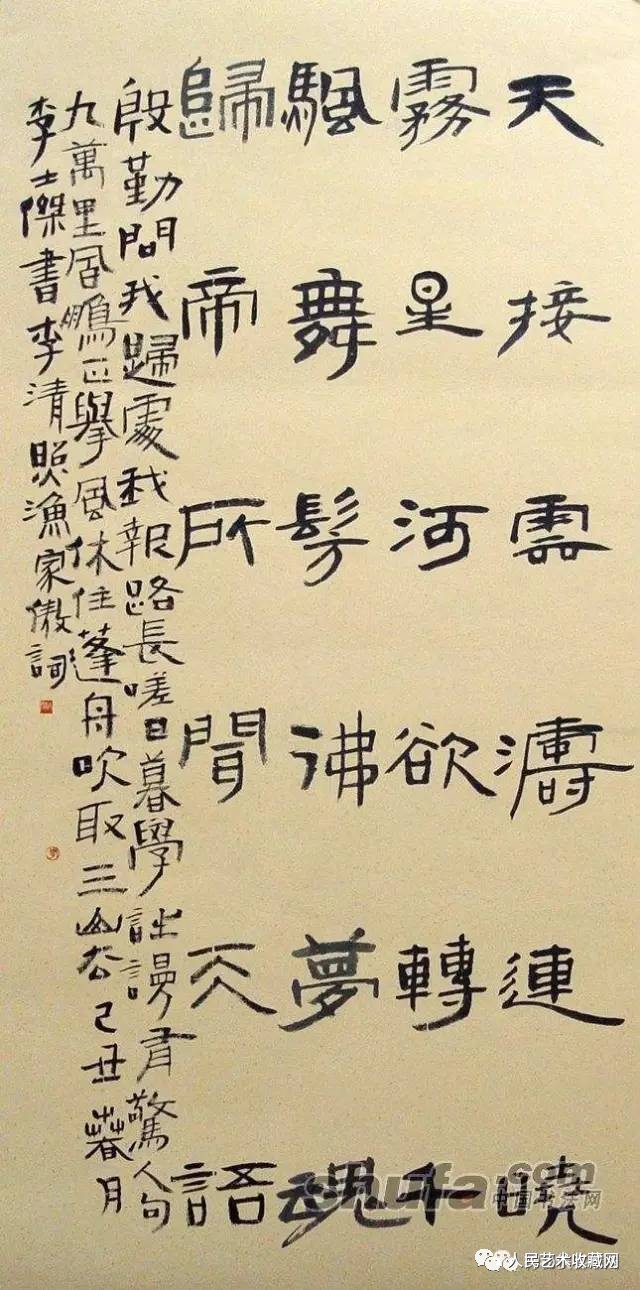 天接雲濤連曉
霧星河欲轉千
颿舞髣彿夢魂
歸帝所聞天語
殷勤問我歸處我報路長嗟日暮學詩謾有驚人句
九萬里風鵬正舉風休住蓬舟吹取三山去己丑春月
李士傑書李清照漁家傲詞
shufa.com
中国书法网
人民艺术收藏网